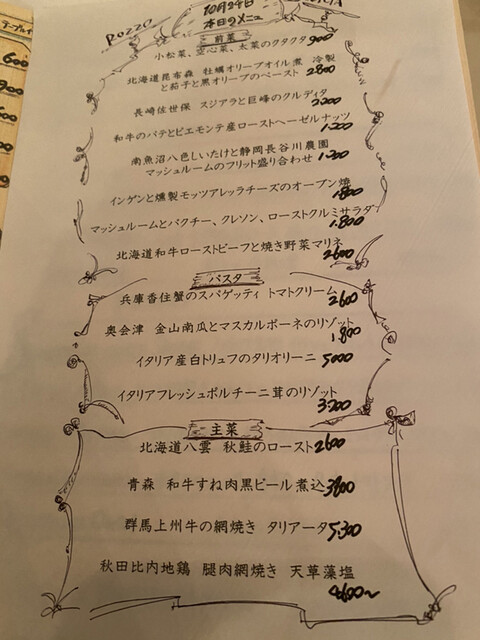 テーブルチ
600
ROZZO
10月24日
本日のメニュ
前菜
小松菜、空心菜、太菜のクタクタ 900
北海道昆布森 牡蠣オリーブオイル煮 冷製
と茄子と黒オリーブのペースト 2800
長崎佐世保 スジアラと巨峰のクルディタ
2200
和牛のパテとピエモンテ産ローストヘーゼルナッツ
1200
南魚沼八色しいたけと静岡長谷川農園
マッシュルームのフリット盛り合わせ
インゲンと燻製モッツアレッラチーズのオーブン焼
1.800
マッシュルームとパクチー、クレソン、ローストクルミサラダ
1.800
北海道和牛ローストビーフと焼き野菜マリネ
2600
パスタ
兵庫香住蟹のスパゲッティ トマトクリーム
2600
奥会津 金山南瓜とマスカルポーネのリゾット
1.800
イタリア産白トリュフのタリオリーニ 5000
イタリアフレッシュポルチーニ茸のリゾット
3200
主菜
北海道八雲 秋鮭のロースト 2600
青森 和牛すね肉黒ビール煮込 3800
群馬上州牛の網焼き タリアータ 5,300
秋田比内地鶏 腿肉網焼き 天草藻塩